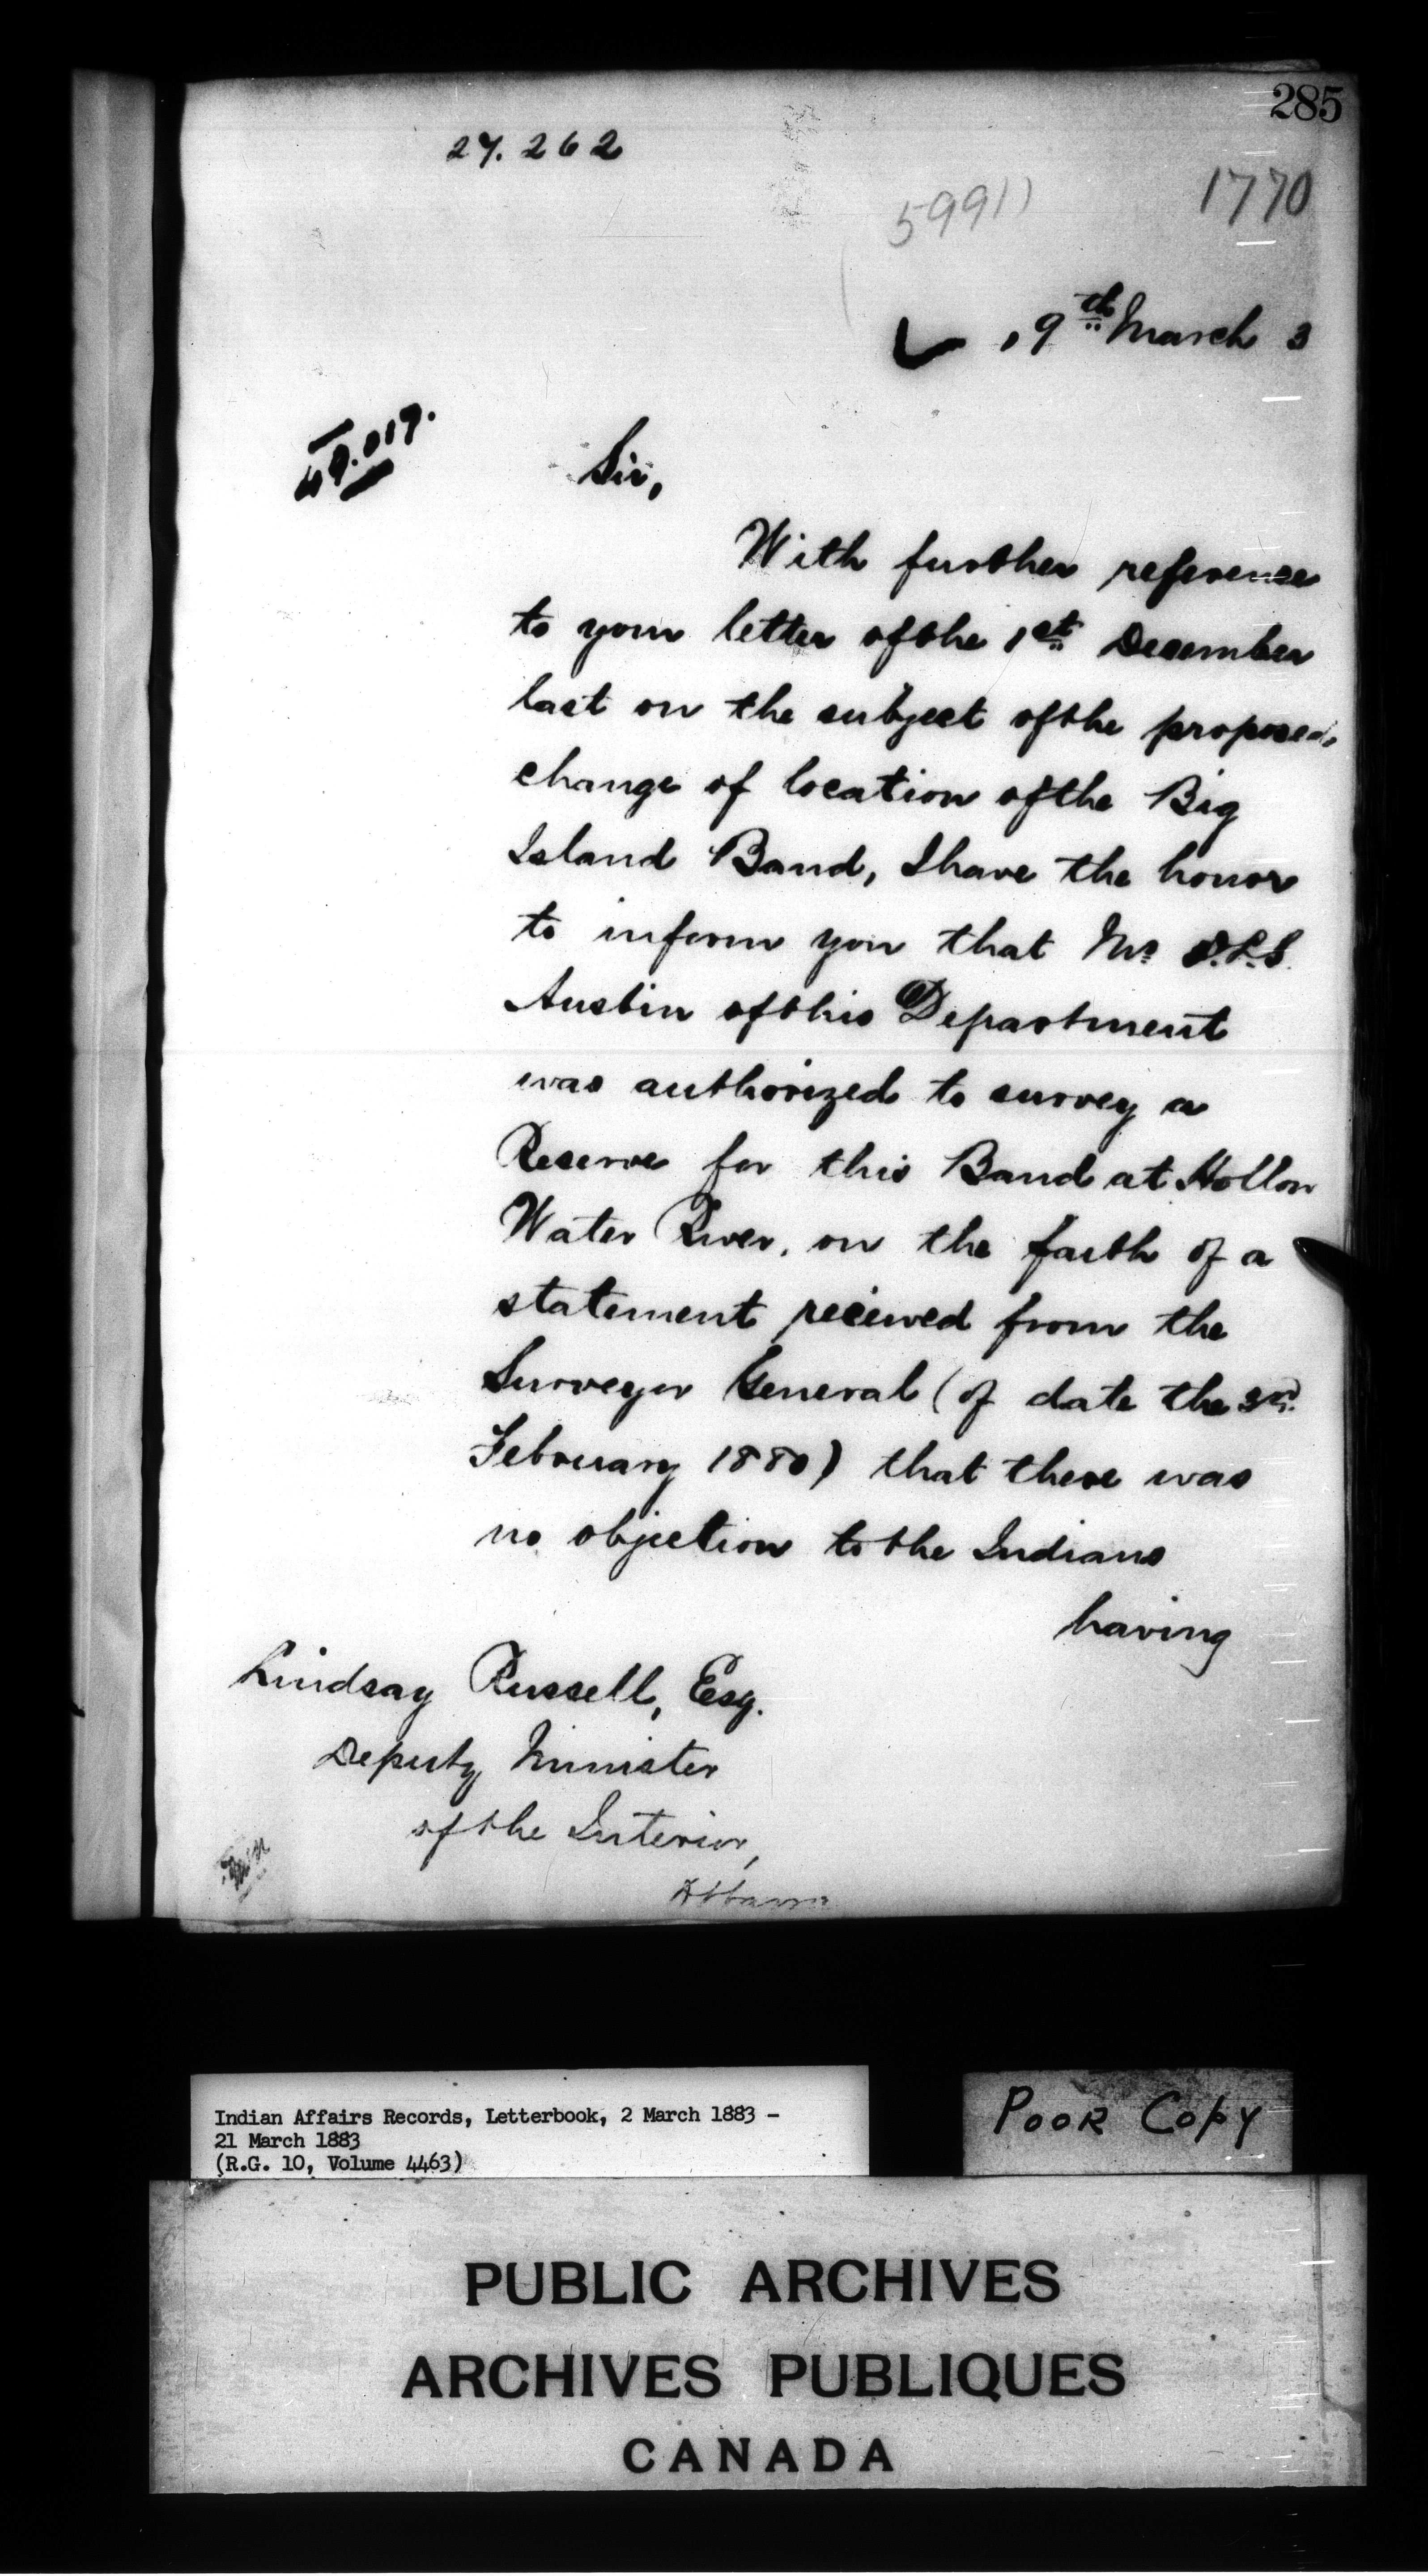 285
27.262
1770
59911
19th March 3
Sir,
With further reference
to your letter of the 1st December
last on the subject of the proposed
change of location of the Big
Island Band, I have the honor
to inform you that Mr
Austin of this Department
was authorized to survey a
Reserve for this Band at Hollow
Water River, on the faith of a
statement received from the
Surveyor General (of date the 3rd
February 1880) that there was
no objection to the Indians
having
Lindsay Russell, Esq.
Deputy Minister
of the Interior,
Ottawa
Indian Affairs Records, Letterbook, 2 March 1883 -
21 March 1883
(R.G. 10, Volume 4463)
POOR COPY
PUBLIC ARCHIVES
ARCHIVES PUBLIQUES
CANADA